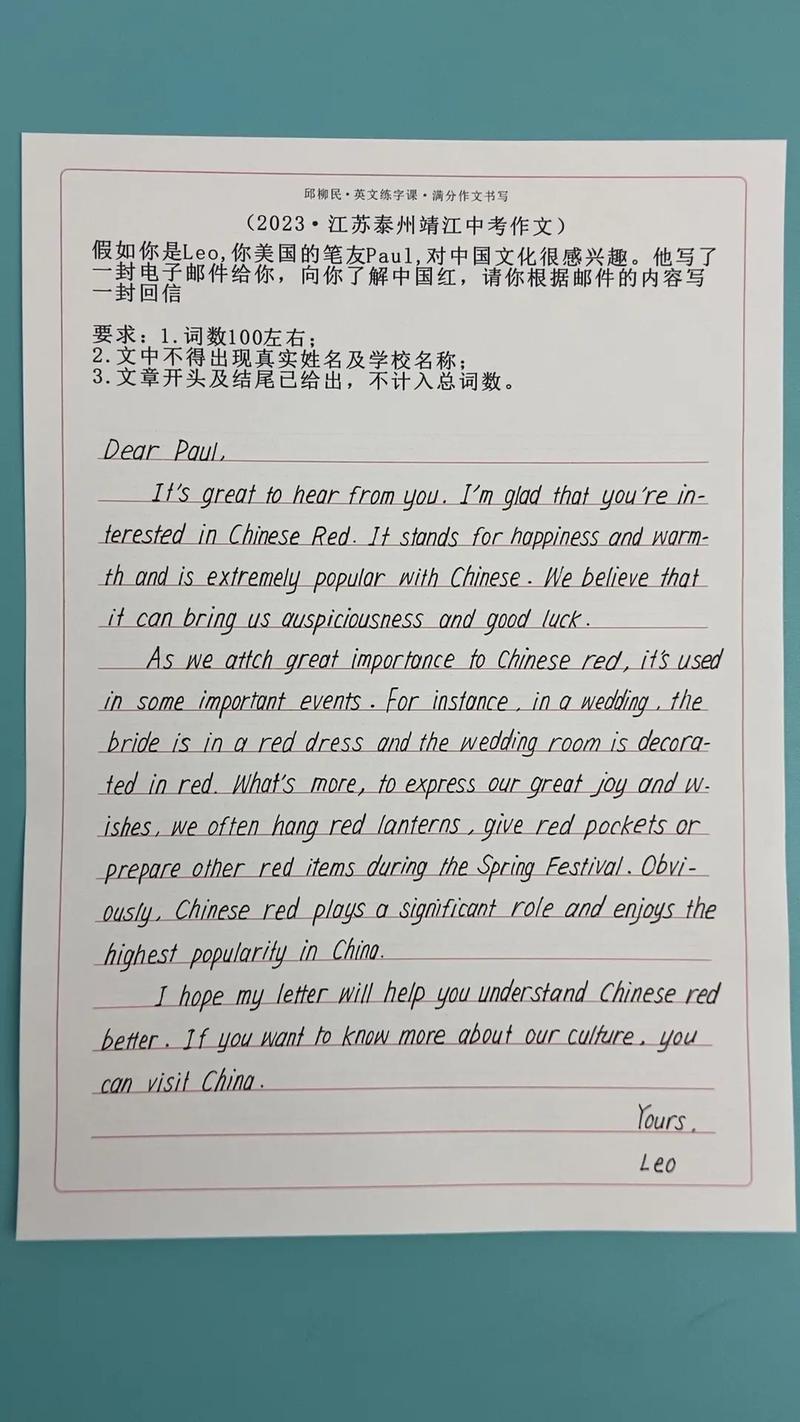 邱柳民·英文练字课·满分作文书写
（2023·江苏泰州靖江中考作文）
假如你是Leo,你美国的笔友Paul,对中国文化很感兴趣。他写了
一封电子邮件给你，向你了解中国红，请你根据邮件的内容写
一封回信
要求：1.词数100左右；
2.文中不得出现真实姓名及学校名称；
3.文章开头及结尾已给出，不计入总词数。
Dear Paul,
It's great to hear from you. I'm glad that you're in-
terested in Chinese Red. It stands for happiness and warm-
th and is extremely popular with Chinese. We believe that
it can bring us auspiciousness and good luck.
As we attch great importance to Chinese red, it's used
in some important events. For instance, in a wedding, the
bride is in a red dress and the wedding room is decora-
ted in red. What's more, to express our great joy and w-
ishes, we often hang red lanterns, give red pockets or
prepare other red items during the Spring Festival. Obvi-
ously, Chinese red plays a significant role and enjoys the
highest popularity in China.
I hope my letter will help you understand Chinese red
better. If you want to know more about our culture, you
can visit China.
Yours,
Leo